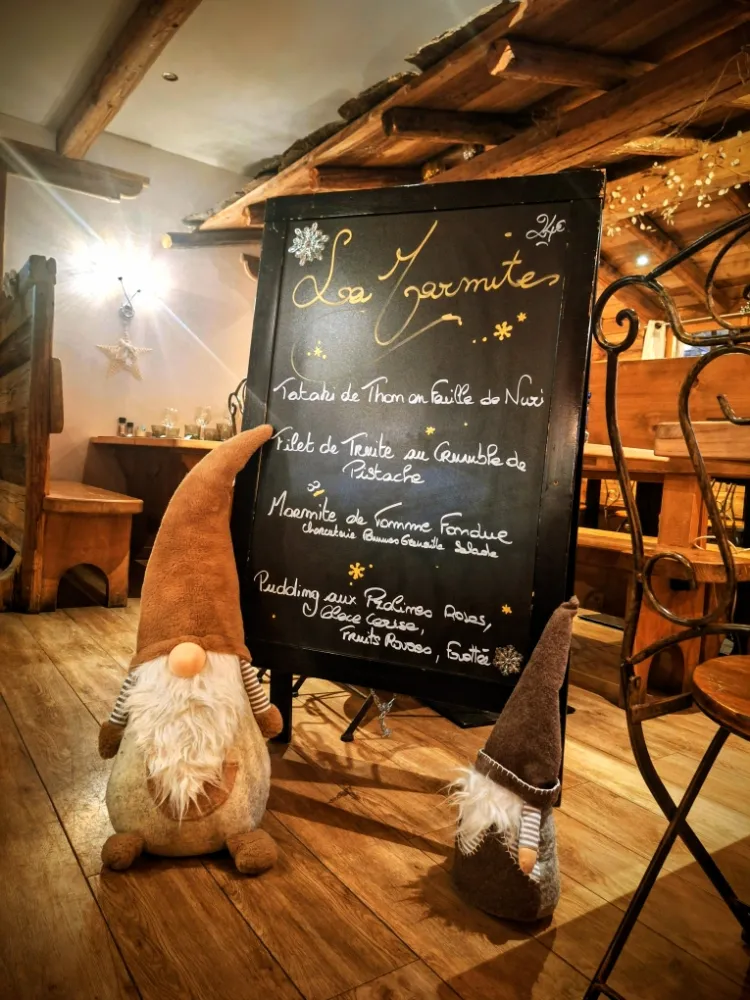 24€
La Marmites
Tataki de Thon en Feuille de Nori
Filet de Truite au Crumble de
Pistache
ou
Marmite de Tomme Fondue
Charcuterie Pommes Grenaille Salade
Pudding aux Pralines Roses,
Glace Cerise,
Fruits Rouges,